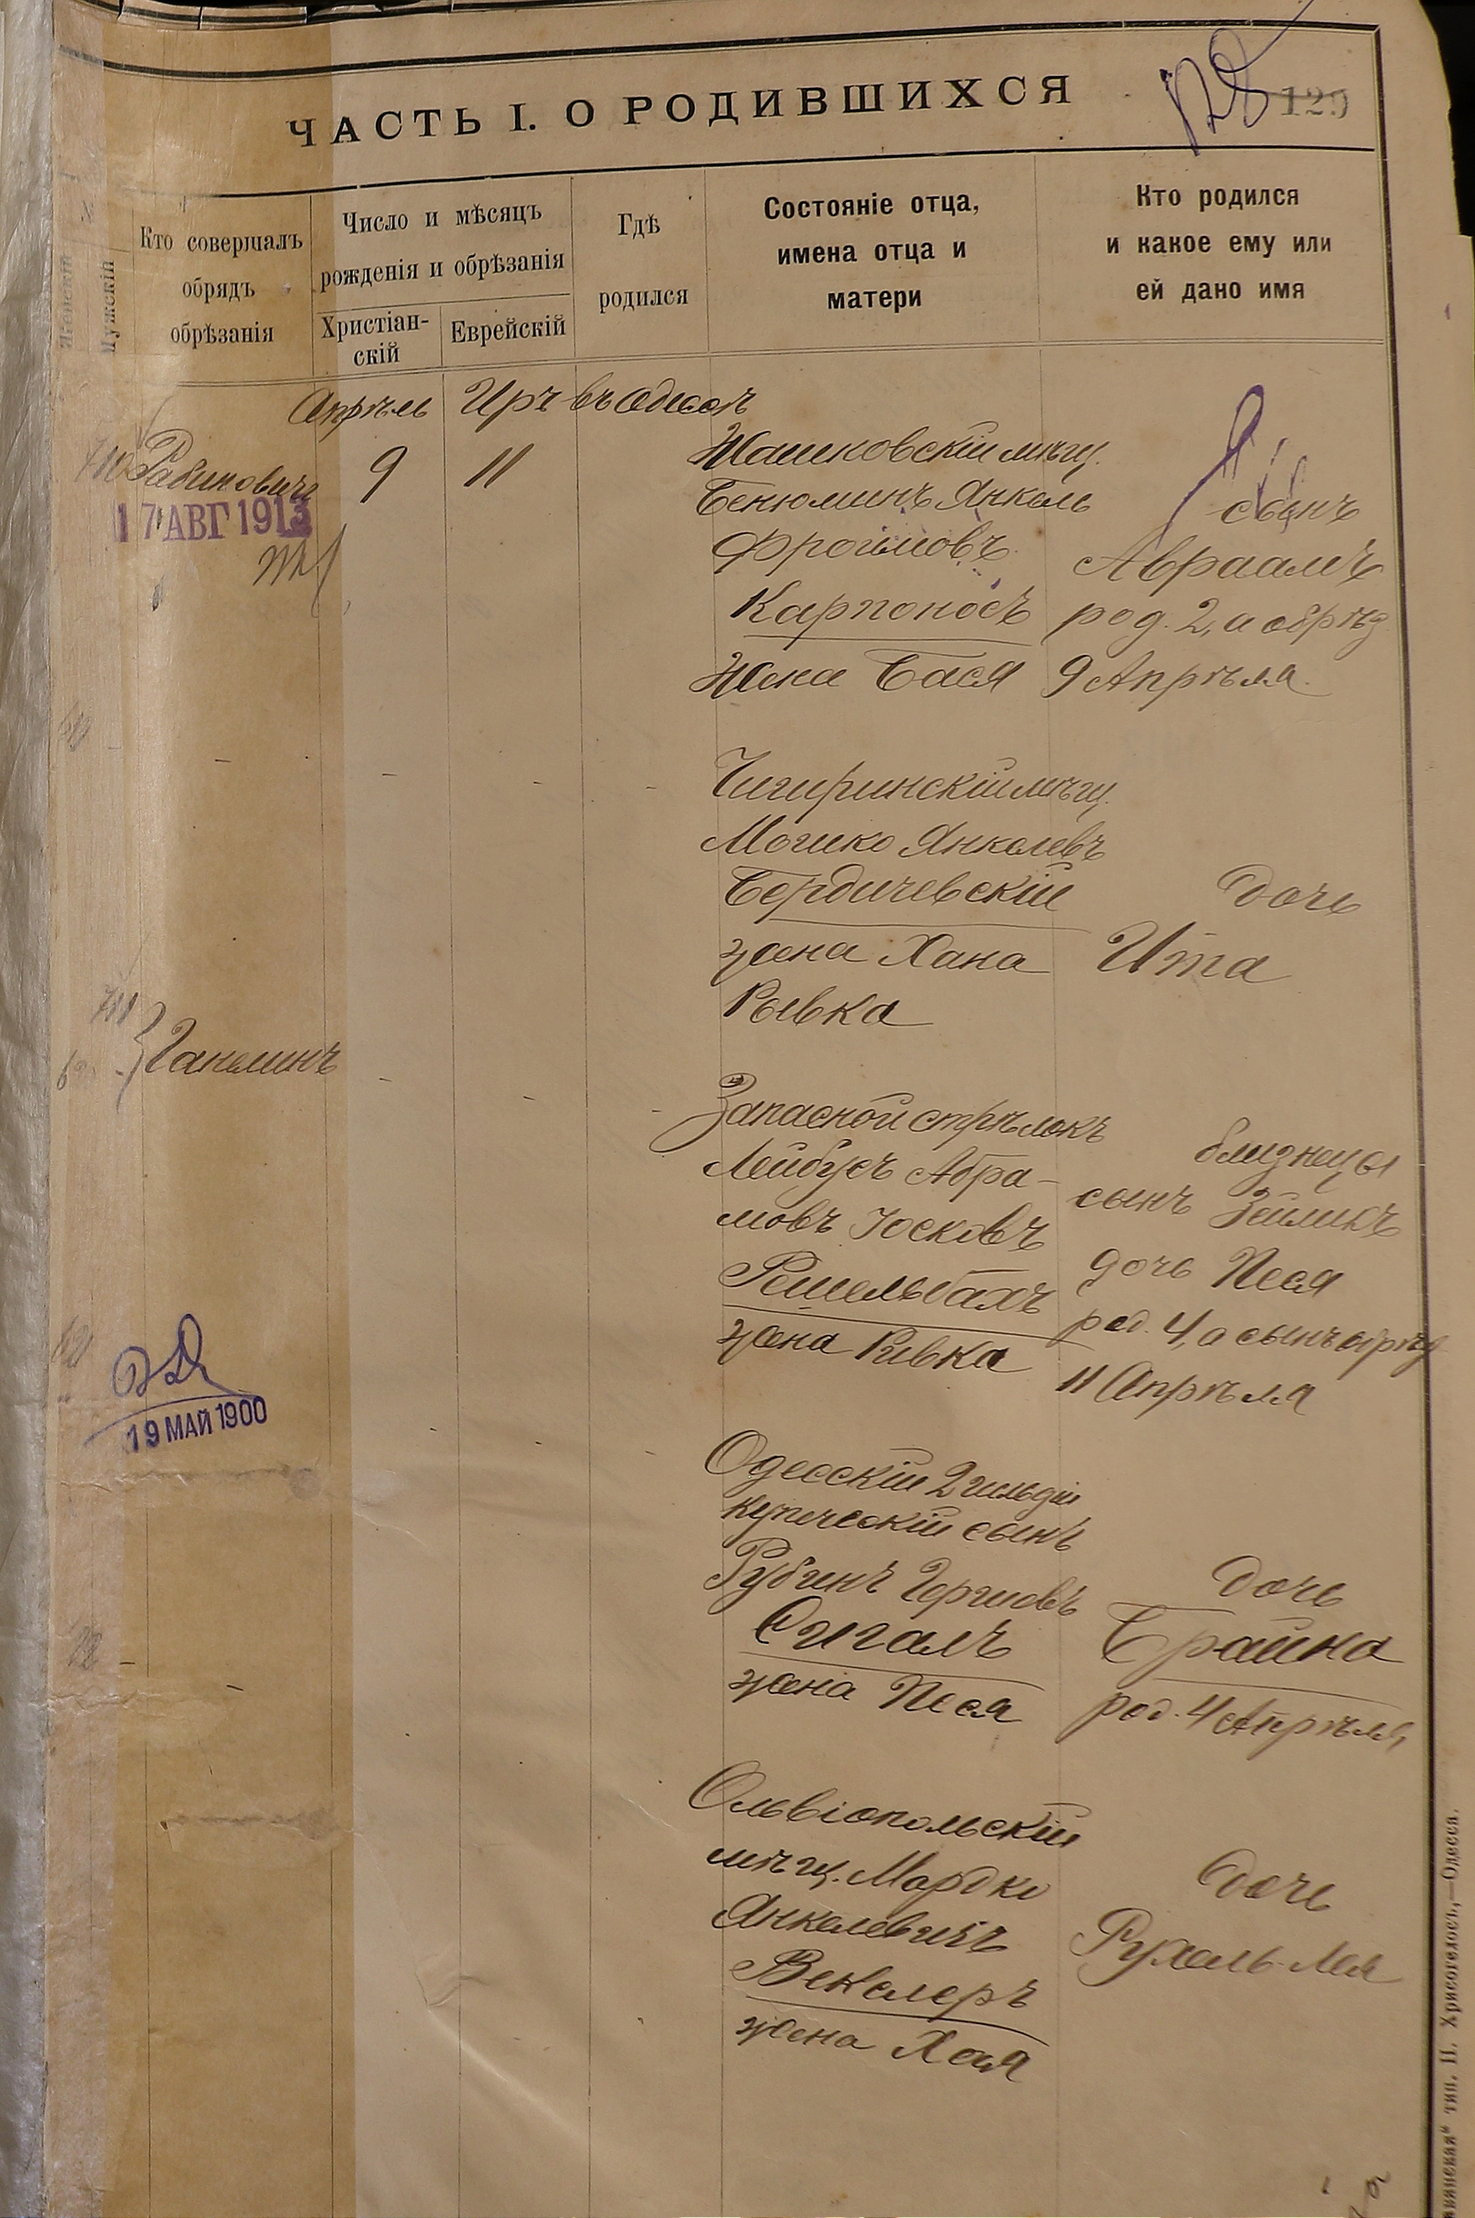 ЧАСТЬ I. О РОДИВШИХСЯ
129
Женскій
Мужскій
Кто совершалъ
обрядъ
обрѣзанія
Число и мѣсяцъ
рожденія и обрѣзанія
Христіан-
скій
Еврейскій
Гдѣ
родился
Состояніе отца,
имена отца и
матери
Кто родился
и какое ему или
ей дано имя
Апрѣль Иръ въ Одессѣ
710 Рабиновичъ 9 11
17 АВГ 1913
Жашковскій мѣщ.
Бенюминъ Янкель
Фроимовъ
Карпоносъ
Жена Бася
сынъ
Авраамъ
род. 2, а обрѣз.
9 Апрѣля.
Чигиринскій мѣщ.
Мошко Янкелевъ
Бердичевскій
жена Хана
Рывка
дочь
Ита
711
Ганелинъ
Запасной стрѣлокъ
Лейбусъ Абра-
мовъ Іосковъ
Решельбахъ
жена Ривка
близнецы
сынъ Зейликъ
дочь Песя
род. 4, а сынъ обрѣз
11 Апрѣля
19 МАЙ 1900
Одесскій 2 гильдіи
купеческій сынъ
Рубинъ Гершовъ
Сигалъ
жена Песя
дочь
Брайна
род. 4 Апрѣля,
Ольвіопольскій
мѣщ. Мордко
Янкелевичъ
Векслеръ
жена Хая
дочь
Рухель-Лея
тип. П. Хрисогелосъ,—Одесса.